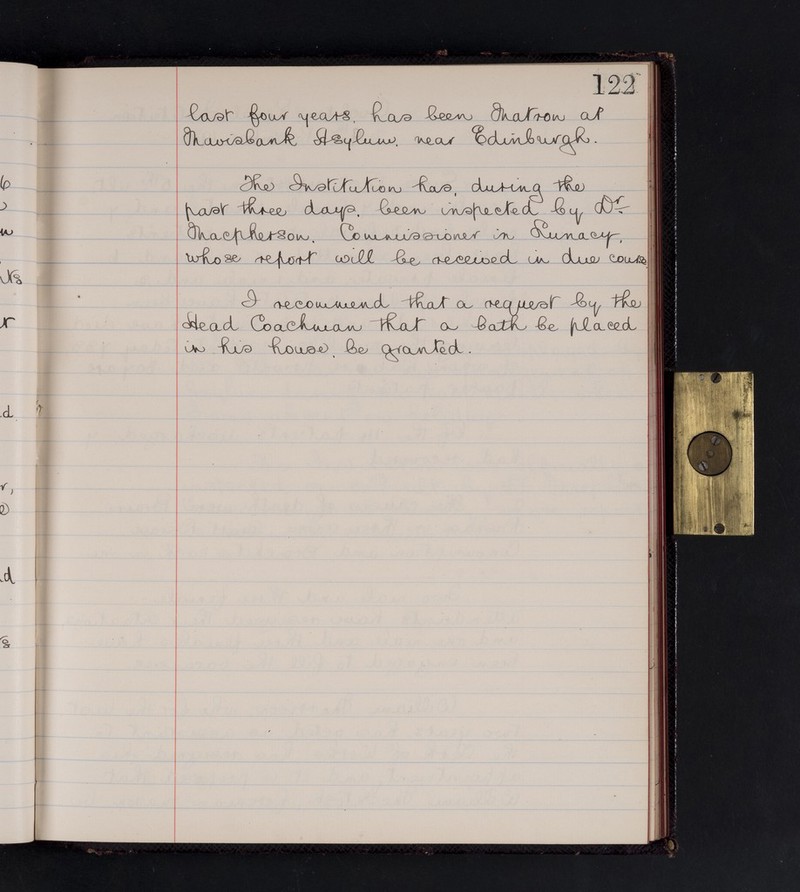 122
last four years, has been Matron at
Mavisbank Asylum, near Edinburgh.
The Institution has, during the
past three days, been inspected by Dr.
Macpherson, Commissioner in Lunacy,
whose report will be received in due course.
I recommend that a request by the
Head Coachman that a bath be placed
in his house, be granted.